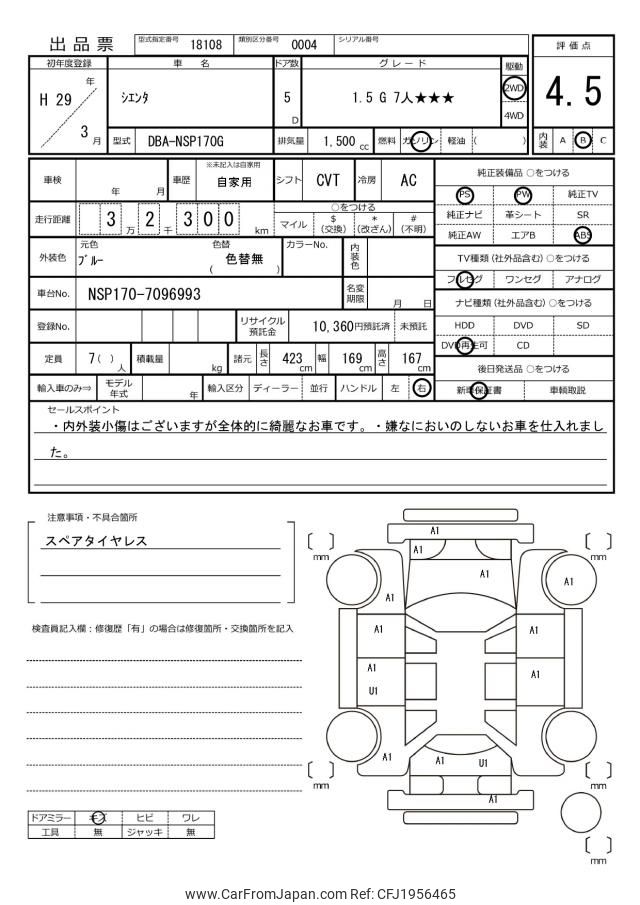 出品票
型式指定番号 18108 類別区分番号 0004 シリアル番号
評価点
4.5
内装 A B C
初年度登録 車名 ドア数 グレード 駆動
H 29 年 3 月
シエンタ
5 D
1.5 G 7人★★★
2WD
4WD
型式 DBA-NSP170G 排気量 1,500 cc 燃料 ガソリン 軽油 ( )
車検 年 月 車歴 ※未記入は自家用 自家用 シフト CVT 冷房 AC
走行距離 3 万 2 千 3 0 0 km
○をつける
マイル $ (交換) * (改ざん) # (不明)
外装色 元色 ブルー 色替 ( 色替無 ) カラーNo. 内装色
車台No. NSP170-7096993 名変期限 月 日
登録No. リサイクル預託金 10,360円預託済 未預託
定員 7( )人 積載量 kg 諸元 長さ 423 cm 幅 169 cm 高さ 167 cm
輸入車のみ⇒ モデル年式 年 輸入区分 ディーラー 並行 ハンドル 左 右
純正装備品 ○をつける
PS PW 純正TV
純正ナビ 革シート SR
純正AW エアB ABS
TV種類 (社外品含む) ○をつける
フルセグ ワンセグ アナログ
ナビ種類 (社外品含む) ○をつける
HDD DVD SD
DVD再生可 CD
後日発送品 ○をつける
新車保証書 車輌取説
セールスポイント
・内外装小傷はございますが全体的に綺麗なお車です。・嫌なにおいのしないお車を仕入れまし
た。
注意事項・不具合箇所
スペアタイヤレス
検査員記入欄：修復歴「有」の場合は修復箇所・交換箇所を記入
ドアミラー キズ ヒビ ワレ
工具 無 ジャッキ 無
[ ] mm
[ ] mm
A1
A1
A1
A1
A1
A1
A1
A1
A1
U1
A1
A1
U1
A1
[ ] mm
[ ] mm
[ ] mm
www.CarFromJapan.com Ref: CFJ1956465